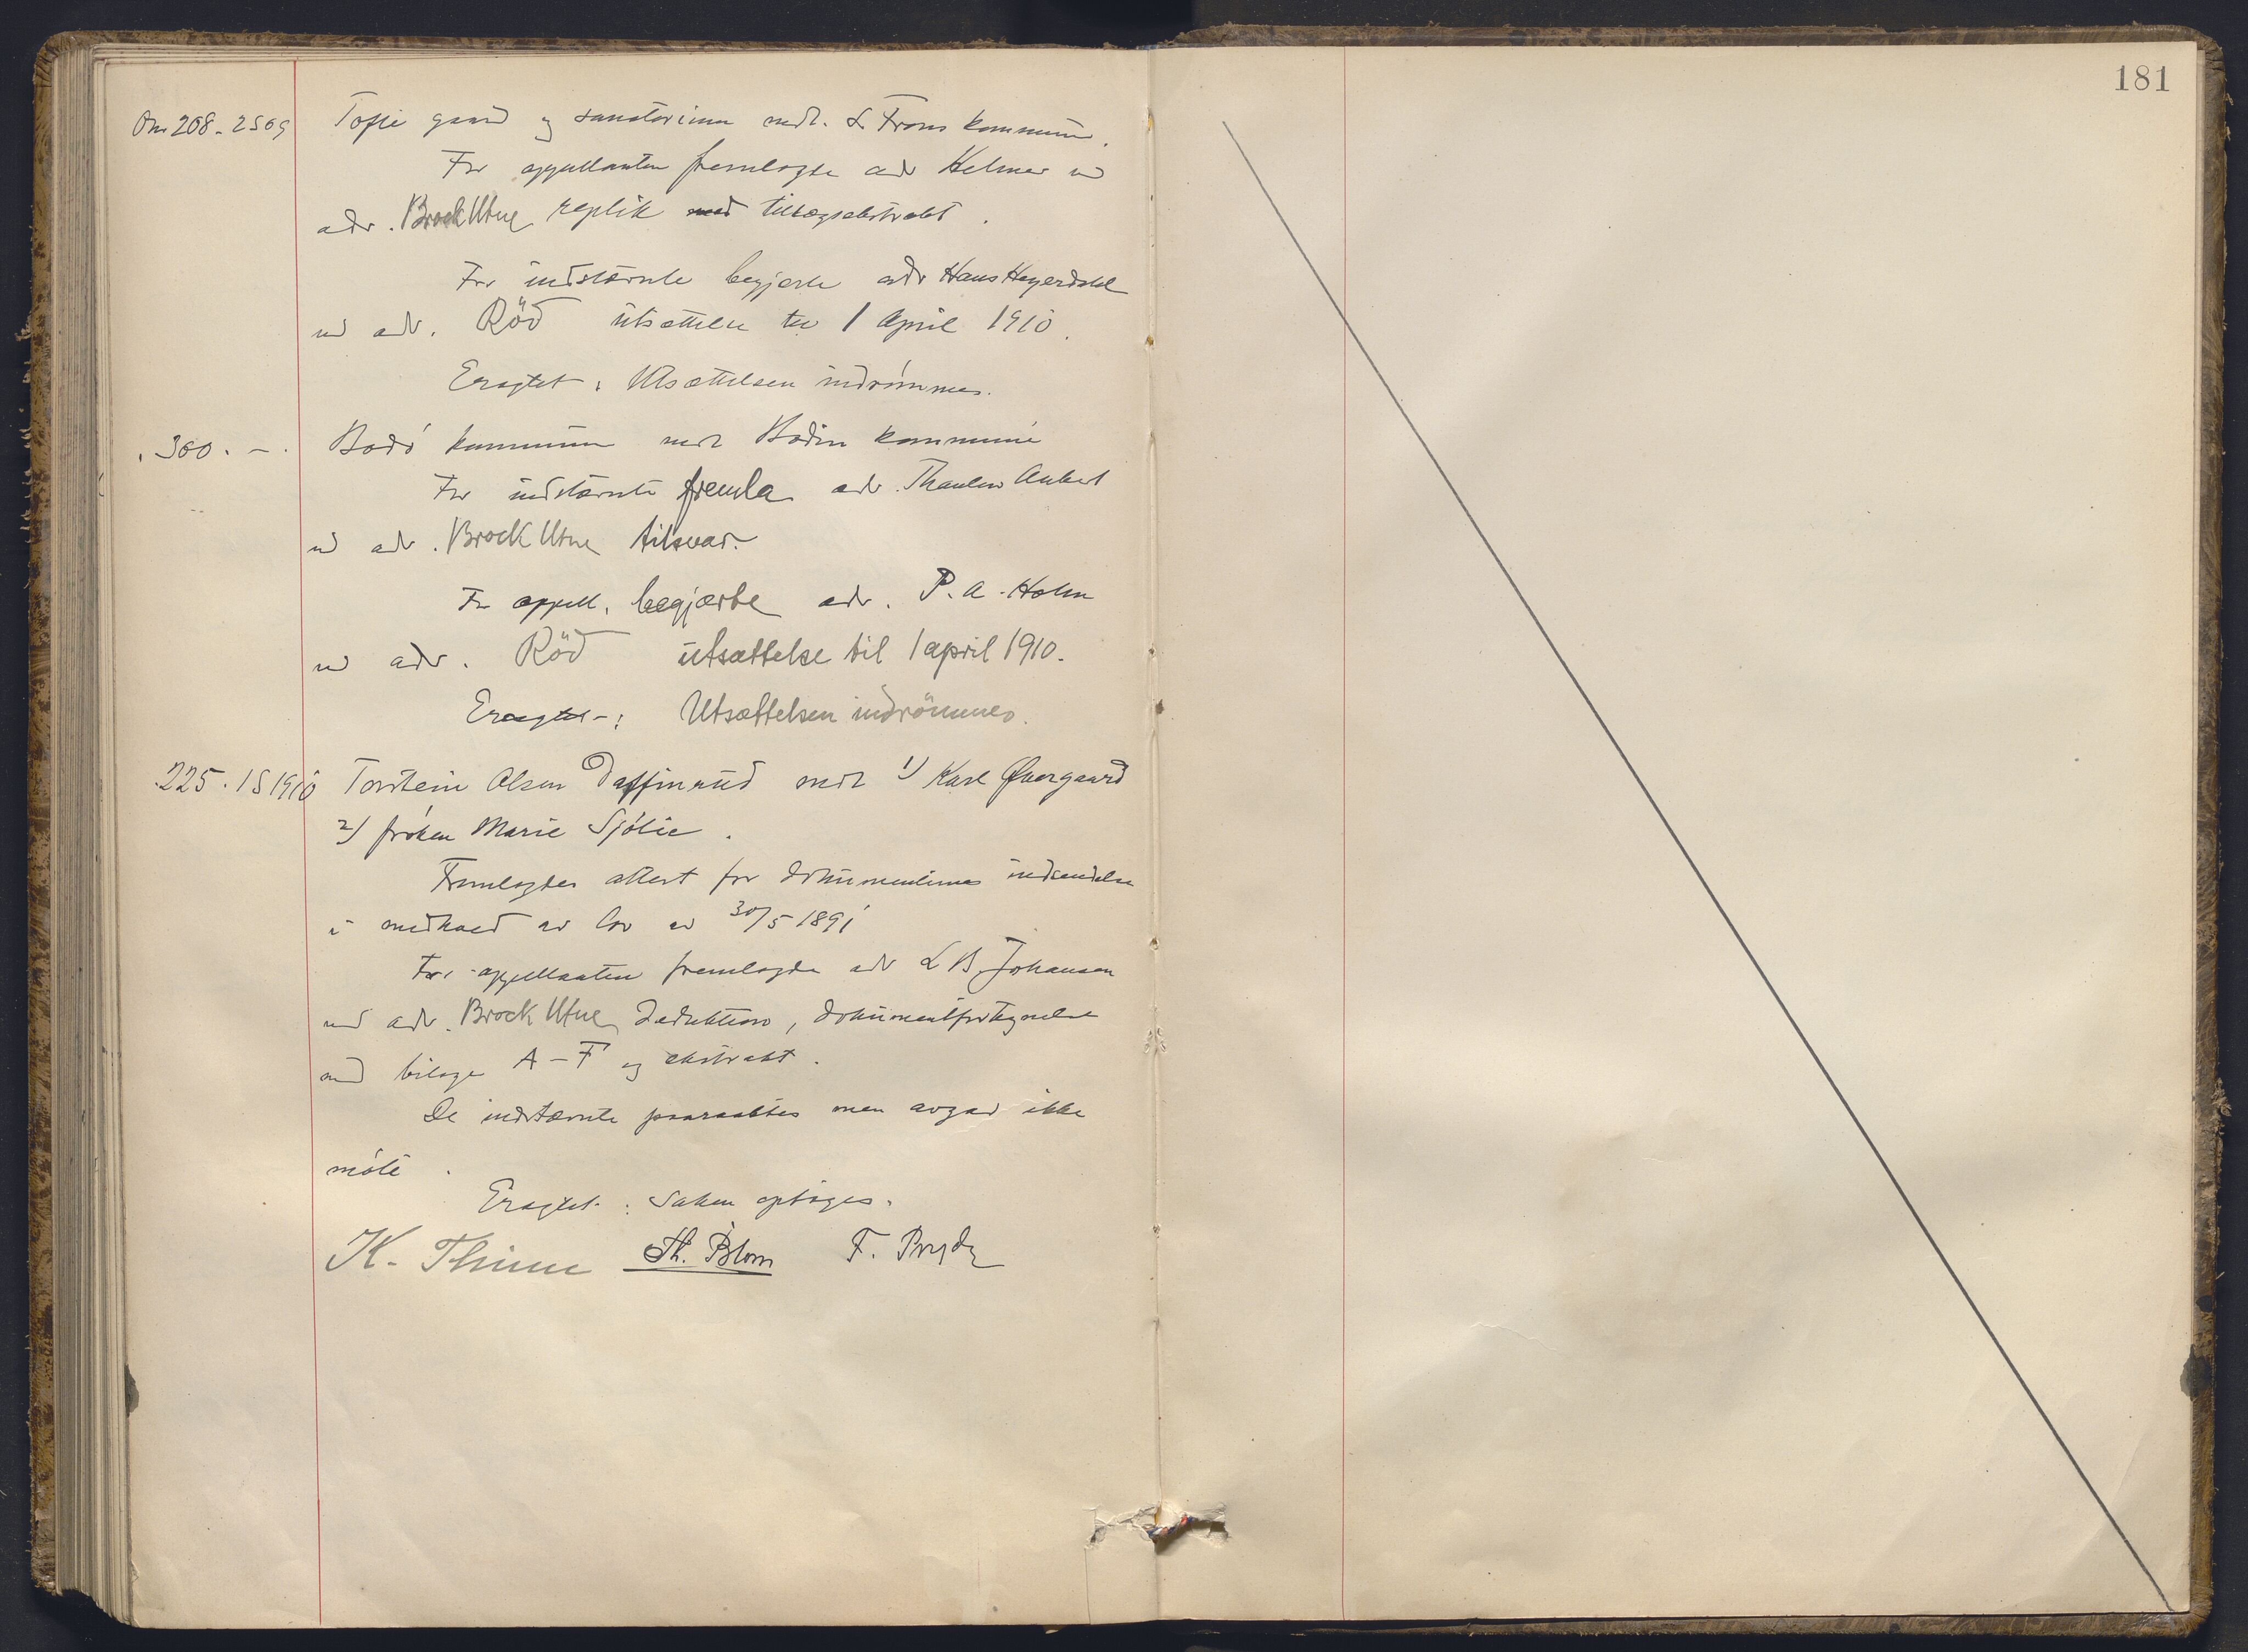 181
Om 208 - 2 S 09 Tofte gaard og sanatorium mot S. Frons kommune.
For appellanten fremlagde adv Helmer ved
adv. Brock Utne replik med tillægsekstrakt.
For indstævnte begjærte adv Hans Heyerdahl
ved adv. Röd utsættelse til 1 april 1910.
Eragtet: Utsættelsen indrömmes.
" 300. - " Bodö kommune mot Bodin kommune
For indstævnte fremla adv. Thaulow Aubert
ved adv. Brock Utne tilsvar.
For appell. begjærte adv. P. A. Holm
ved adv. Röd utsættelse til 1 april 1910.
Eragtet: Utsættelsen indrömmes.
" 225. 1 S 1910 Torstein Olsen Daffinrud mot 1) Karl Övergaard
2) fröken Marie Sjölie.
Fremlagdes attest for dokumenternes indsendelse
i medhold av lov av 30/5 1891
For appellanten fremlagde adv L B. Johansen
ved adv. Brock Utne deduktion, dokumentfortegnelse
med bilage A - F og ekstrakt.
De indstævnte paaraabtes men avgav ikke
möte.
Eragtet: Saken optages.
K. Thinn Th. Blom F. Bryde